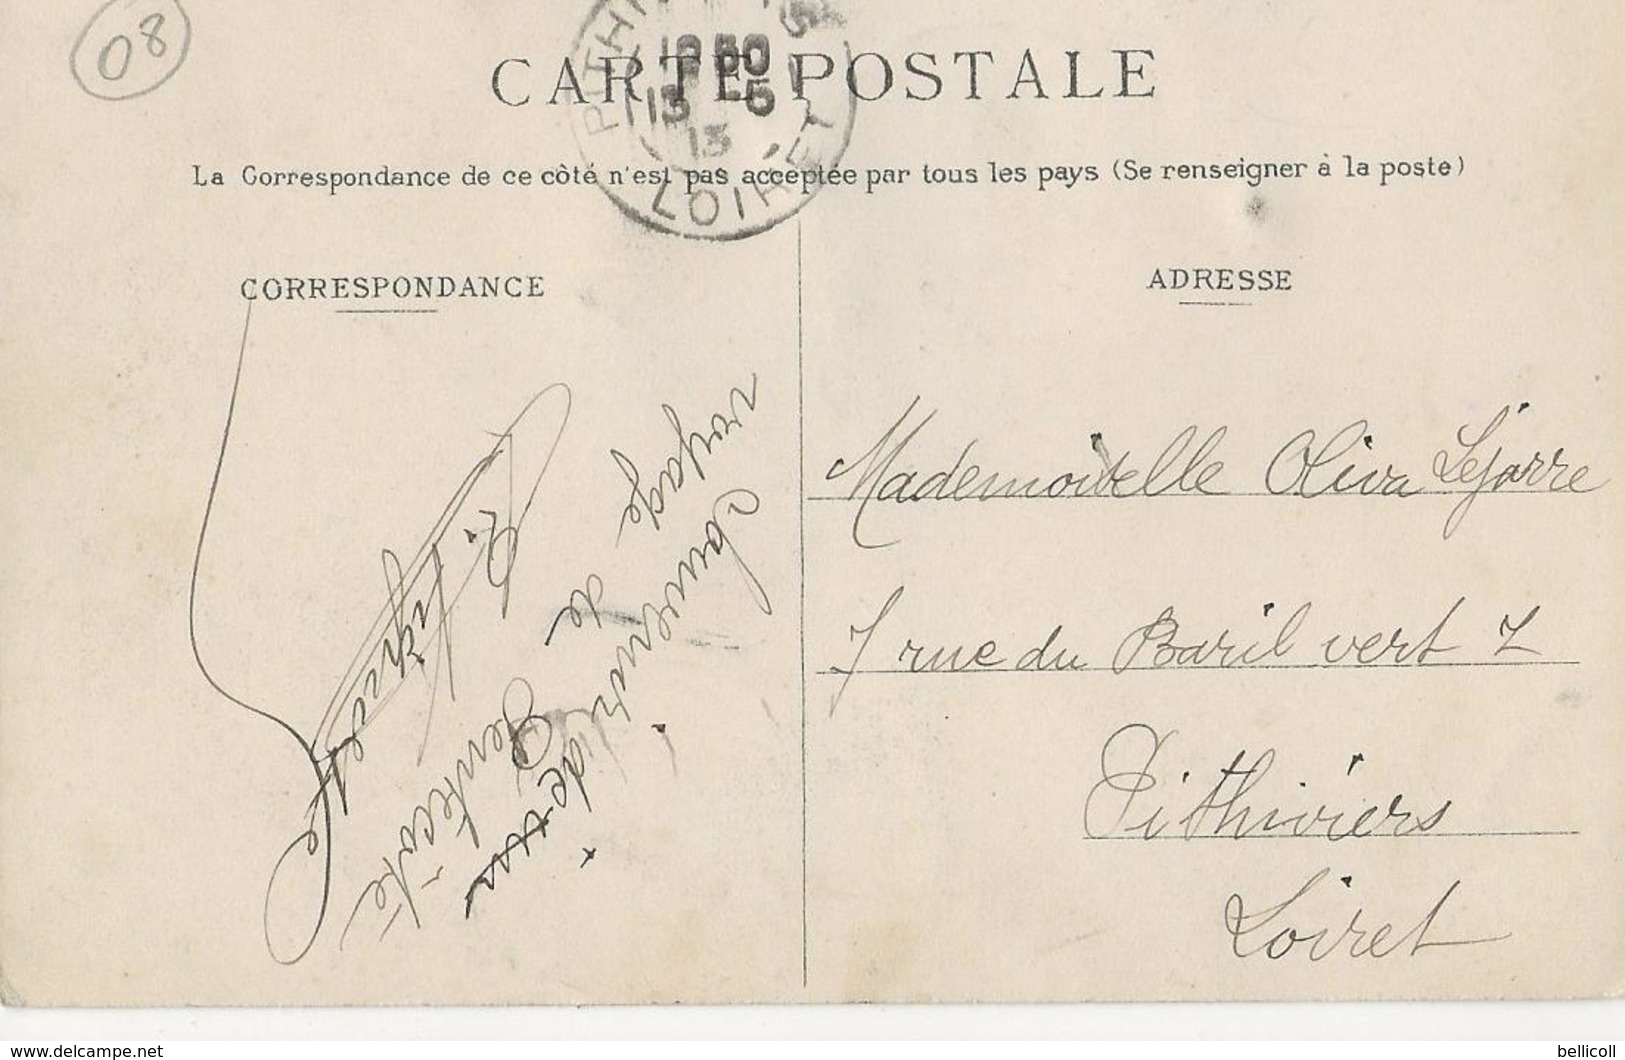 08
CARTE POSTALE
PITHIVIERS
10 50
13 5
13
LOIRET
La Correspondance de ce côté n'est pas acceptée par tous les pays (Se renseigner à la poste)
CORRESPONDANCE
ADRESSE
Souvenir d'un
voyage de
Mademoiselle Oliva Lejarre
7 rue du Baril vert 7
Pithiviers
Loiret
www.delcampe.net
bellicoll